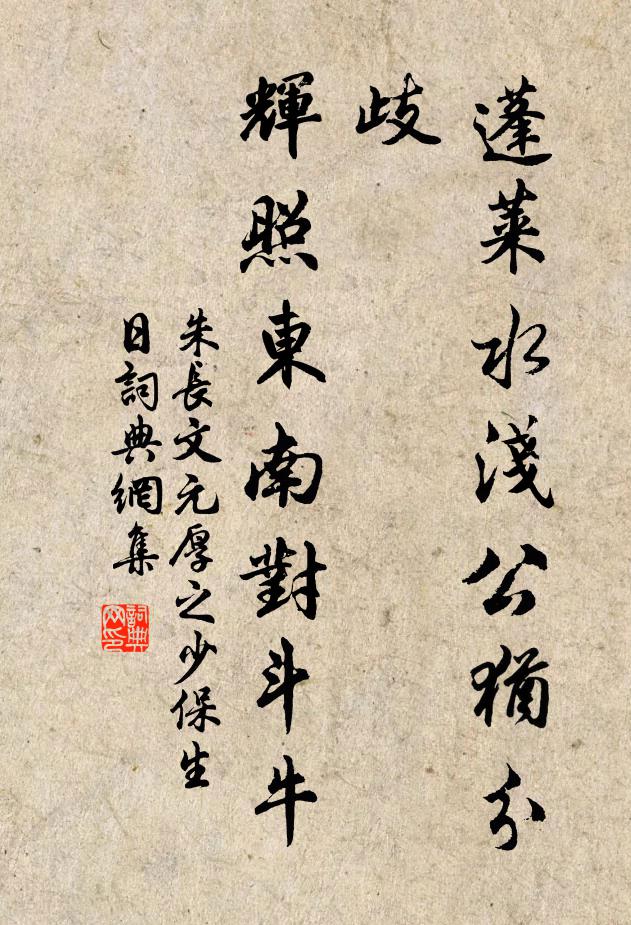 蓬萊水淺公猶分
歧
輝照東南對斗牛
朱長文元厚之少保生
日詞典網集
詞典网印